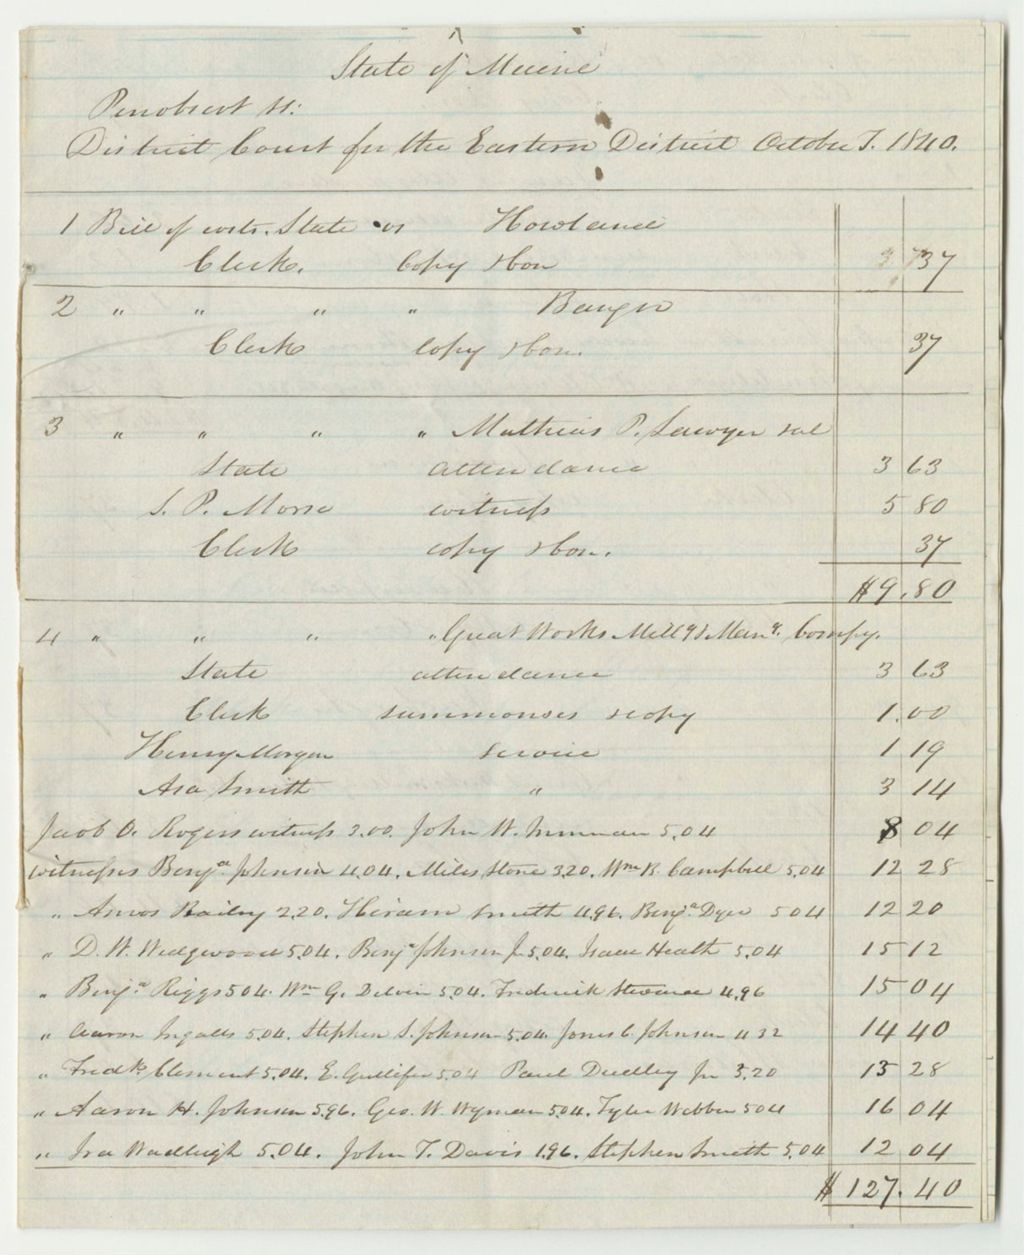 State of Maine
Penobscot ss:
District Court for the Eastern District October T. 1840.
1 Bill of costs. State vs Howland
Clerk. Copy &con 37
2 " " " " Bangor
Clerk copy &con. 37
3 " " " " Mathias P. Sawyer &al
State attendance 3 63
S. P. Morse witness 5 80
Clerk copy &con. 37
$9.80
4 " " " " Great Works Mill &Many. Compy.
State attendance 3 63
Clerk summonses &copy 1.00
Henry Morgan service 1 19
Asa Smith " 3 14
Jacob O. Rogers witness 3.00. John W. Inman 5.04 8 04
witnesses Benja Johnson 4.04. Miles Stone 3.20. Wm R. Campbell 5.04 12 28
" Amos Bailey 2.20. Hiram Smith 4.96. Benja Dyer 5 04 12 20
" D. W. Wedgwood 5.04. Benja Johnson Jr 5.04. Isaac Heath 5.04 15 12
" Benja Riggs 5 04. Wm G. Delvin 5.04. Frederick 4.96 15 04
" Aaron Ingalls 5.04. Stephen S. Johnson 5.04. Jones C. Johnson 4 32 14 40
" Fredk Clement 5.04. E. Gullifer 5 04 Paul Dudley Jr 3.20 13 28
" Aaron H. Johnson 5.96. Geo. W. Wyman 5.04. Tyler Webber 5 04 16 04
" Ira Wadleigh 5.04. John T. Davis 1.96. Stephen Smith 5.04 12 04
$127.40